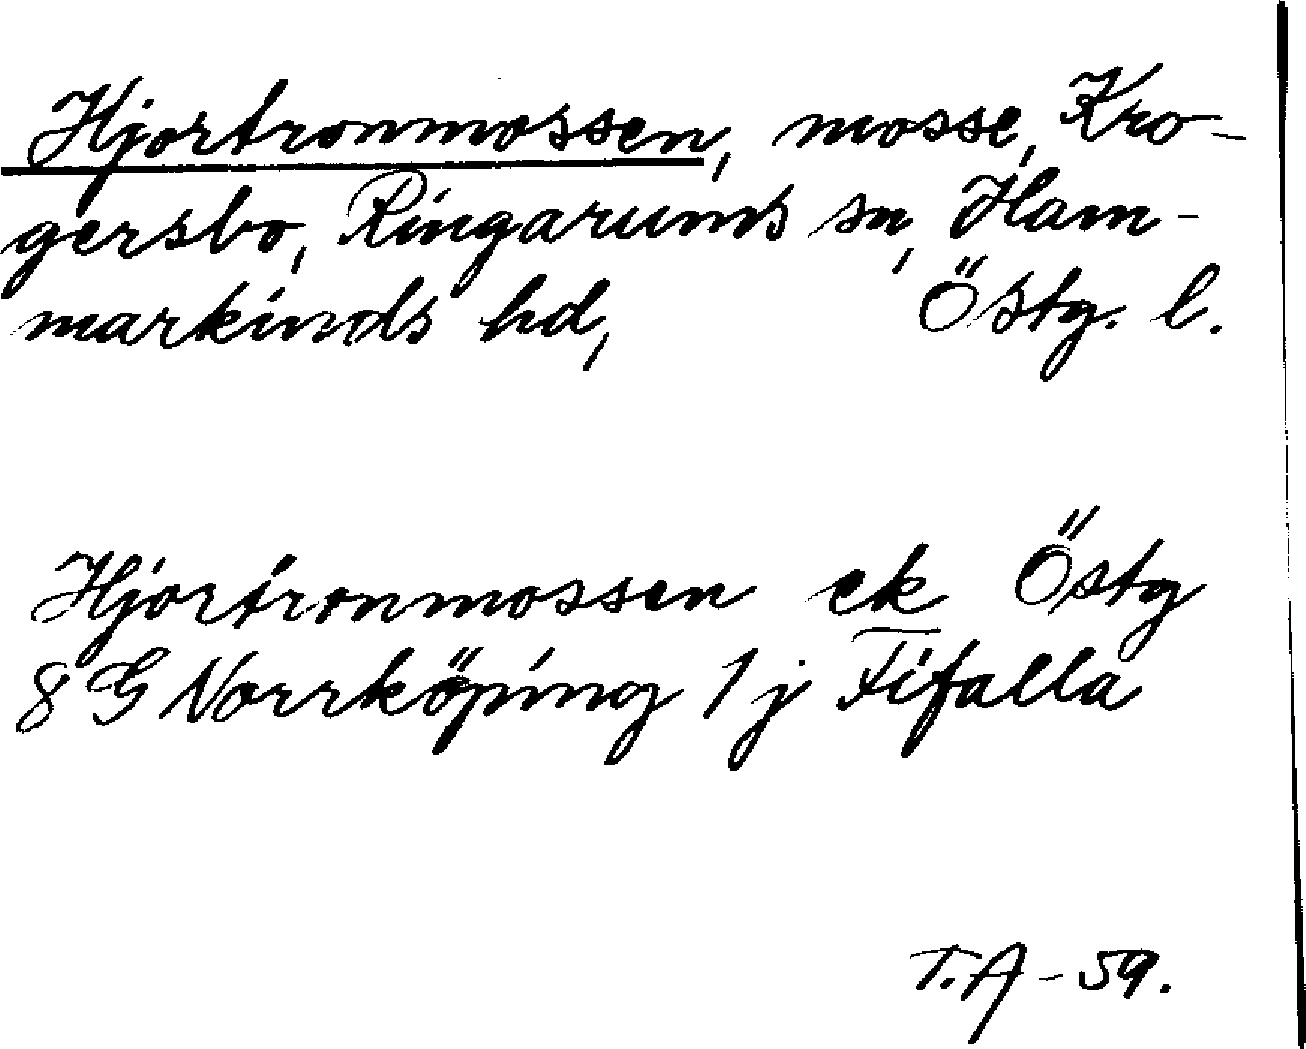 Hjortronmossen, mosse, Kro-
gersbo, Ringarums sn, Ham-
markinds hd, Östg. l.
Hjortronmossen ek Östg
8 G Norrköping 1 j Fifalla
T.A - 59.